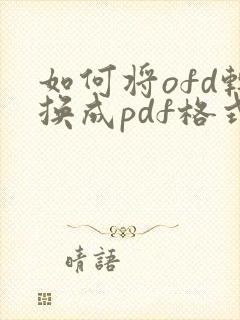 如何将ofd轉
换成pdf格式
晴語